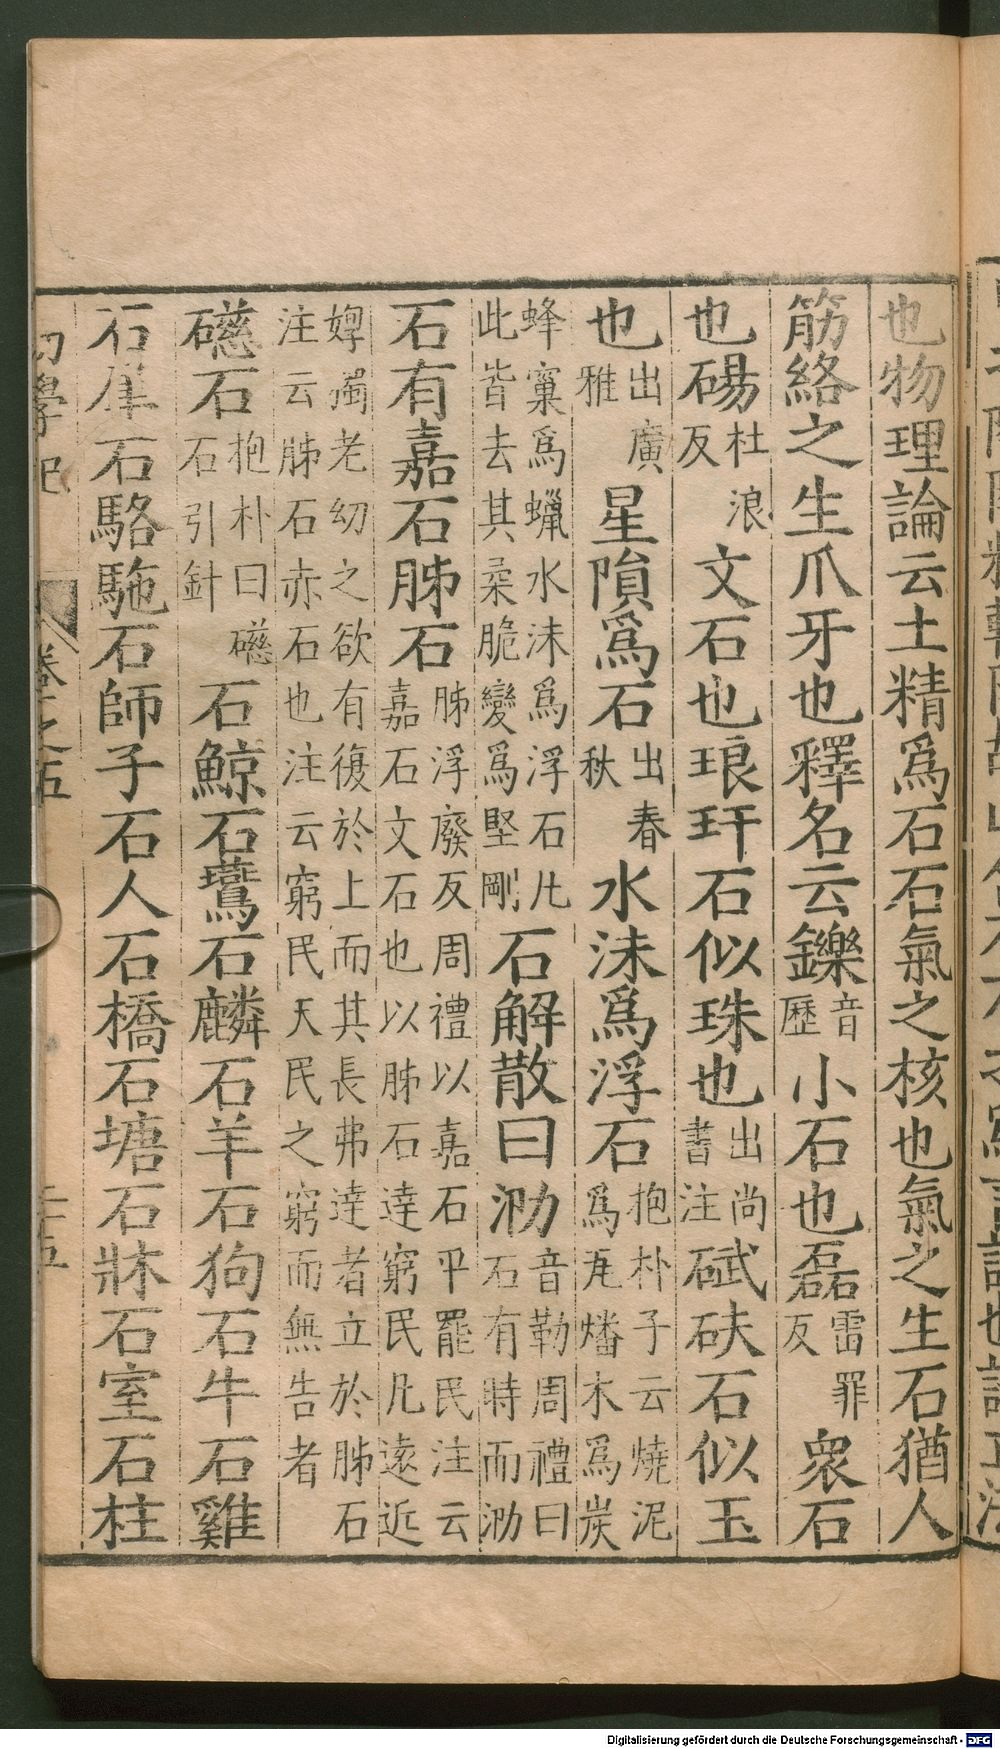 也物理論云土精爲石石氣之核也氣之生石猶人
筋絡之生爪牙也釋名云鑠音歷小石也磊雷罪反衆石
也碭杜浪反文石也琅玕石似珠也出尚書注碔砆石似玉
也出廣雅星隕爲石出春秋水沫爲浮石抱朴子云燒泥爲瓦燔木爲炭
蜂窠爲蠟水沫爲浮石凡此皆去其柔脆變爲堅剛石解散曰泐音勒周禮曰石有時而泐
石有嘉石胏石胏浮廢反周禮以嘉石平罷民注云嘉石文石也以胏石達窮民凡遠近
婢獨老幼之欲有復於上而其長弗達者立於胏石注云胏石赤石也注云窮民天民之窮而無告者
礠石抱朴曰礠石引針石鯨石鷟石麟石羊石狗石牛石雞
石犀石駱駞石師子石人石橋石塘石牀石室石柱
初學記 卷之五 二十五
Digitalisierung gefördert durch die Deutsche Forschungsgemeinschaft - DFG